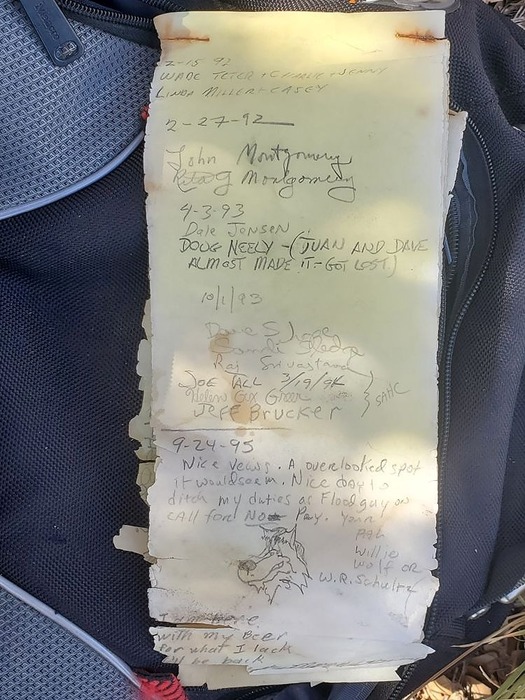 2-15 92
WADE TETER + + JENNY
LINDA MILLER + CASEY
2-27-92
John Montgomery
Rita G Montgomery
4-3-93
Dale JENSEN
DOUG NEELY - (JUAN AND DAVE
ALMOST MADE IT - GOT LOST)
10/1/93
Dave
Raj Srivastava
JOE TALL 3/19/94
Helen Greer
SAHC
JEFF BRUCKER
9-24-95
Nice Veiws. A overlooked spot
it would seem. Nice day to
ditch my duties as Flood guy on
call for NO Pay. Your
Pal
Willie
Wolf OR
W.R. Schultz
I'm here
with my Beer
For what I lack
I'll be back